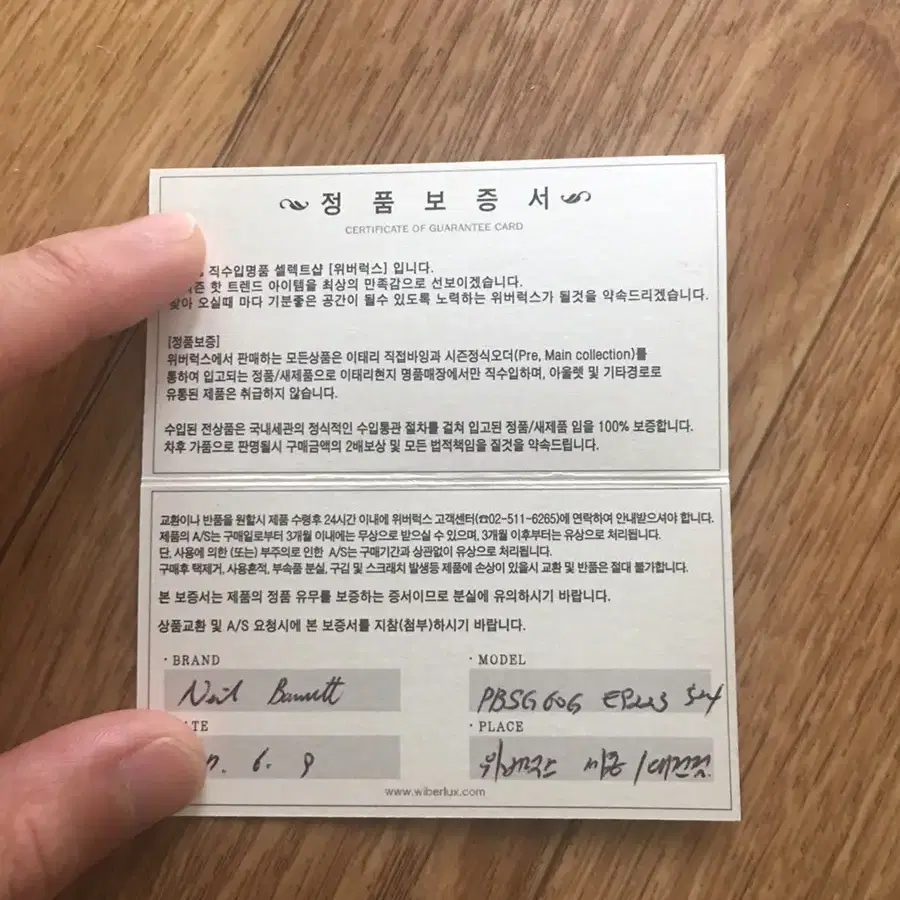 정품보증서
CERTIFICATE OF GUARANTEE CARD
직수입명품 셀렉트샵 [위버럭스] 입니다.
핫 트렌드 아이템을 최상의 만족감으로 선보이겠습니다.
찾아 오실때 마다 기분좋은 공간이 될수 있도록 노력하는 위버럭스가 될것을 약속드리겠습니다.
[정품보증]
위버럭스에서 판매하는 모든상품은 이태리 직접바잉과 시즌정식오더(Pre, Main collection)를
통하여 입고되는 정품/새제품으로 이태리현지 명품매장에서만 직수입하며, 아울렛 및 기타경로로
유통된 제품은 취급하지 않습니다.
수입된 전상품은 국내세관의 정식적인 수입통관 절차를 걸쳐 입고된 정품/새제품 임을 100% 보증합니다.
차후 가품으로 판명될시 구매금액의 2배보상 및 모든 법적책임을 질것을 약속드립니다.
교환이나 반품을 원할시 제품 수령후 24시간 이내에 위버럭스 고객센터(☎02-511-6265)에 연락하여 안내받으셔야 합니다.
제품의 A/S는 구매일로부터 3개월 이내에는 무상으로 받으실 수 있으며, 3개월 이후부터는 유상으로 처리됩니다.
단, 사용에 의한 (또는) 부주의로 인한 A/S는 구매기간과 상관없이 유상으로 처리됩니다.
구매후 택제거, 사용흔적, 부속품 분실, 구김 및 스크래치 발생등 제품에 손상이 있을시 교환 및 반품은 절대 불가합니다.
본 보증서는 제품의 정품 유무를 보증하는 증서이므로 분실에 유의하시기 바랍니다.
상품교환 및 A/S 요청시에 본 보증서를 지참(첨부)하시기 바랍니다.
· BRAND
· MODEL
Neil Barrett
PBSG606
· PLACE
6. 9
위버럭스
www.wiberlux.com